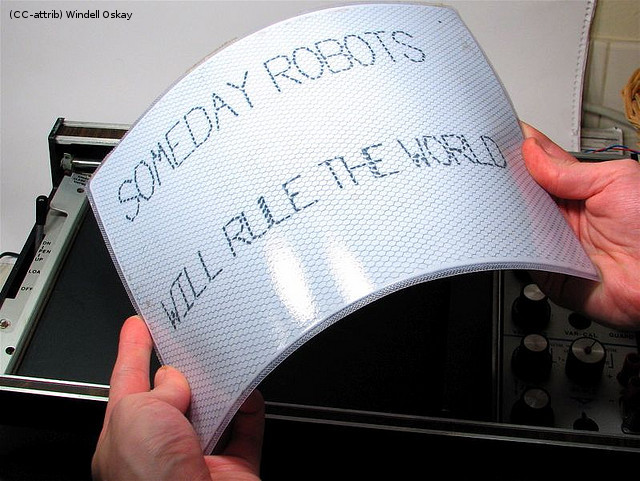 (CC-attrib) Windell Oskay
SOMEDAY ROBOTS
WILL RULE THE WORLD
ON
PEN
UP
LOA
OFF